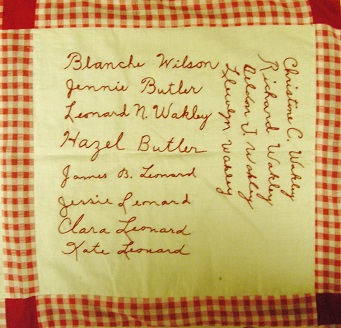 Blanche Wilson
Jennie Butler
Leonard N. Wakley
Hazel Butler
James B. Leonard
Jessie Leonard
Clara Leonard
Kate Leonard
Christine C. Wakley
Richard Wakley
Weldon J. Wakley
Llewlyn Wakley